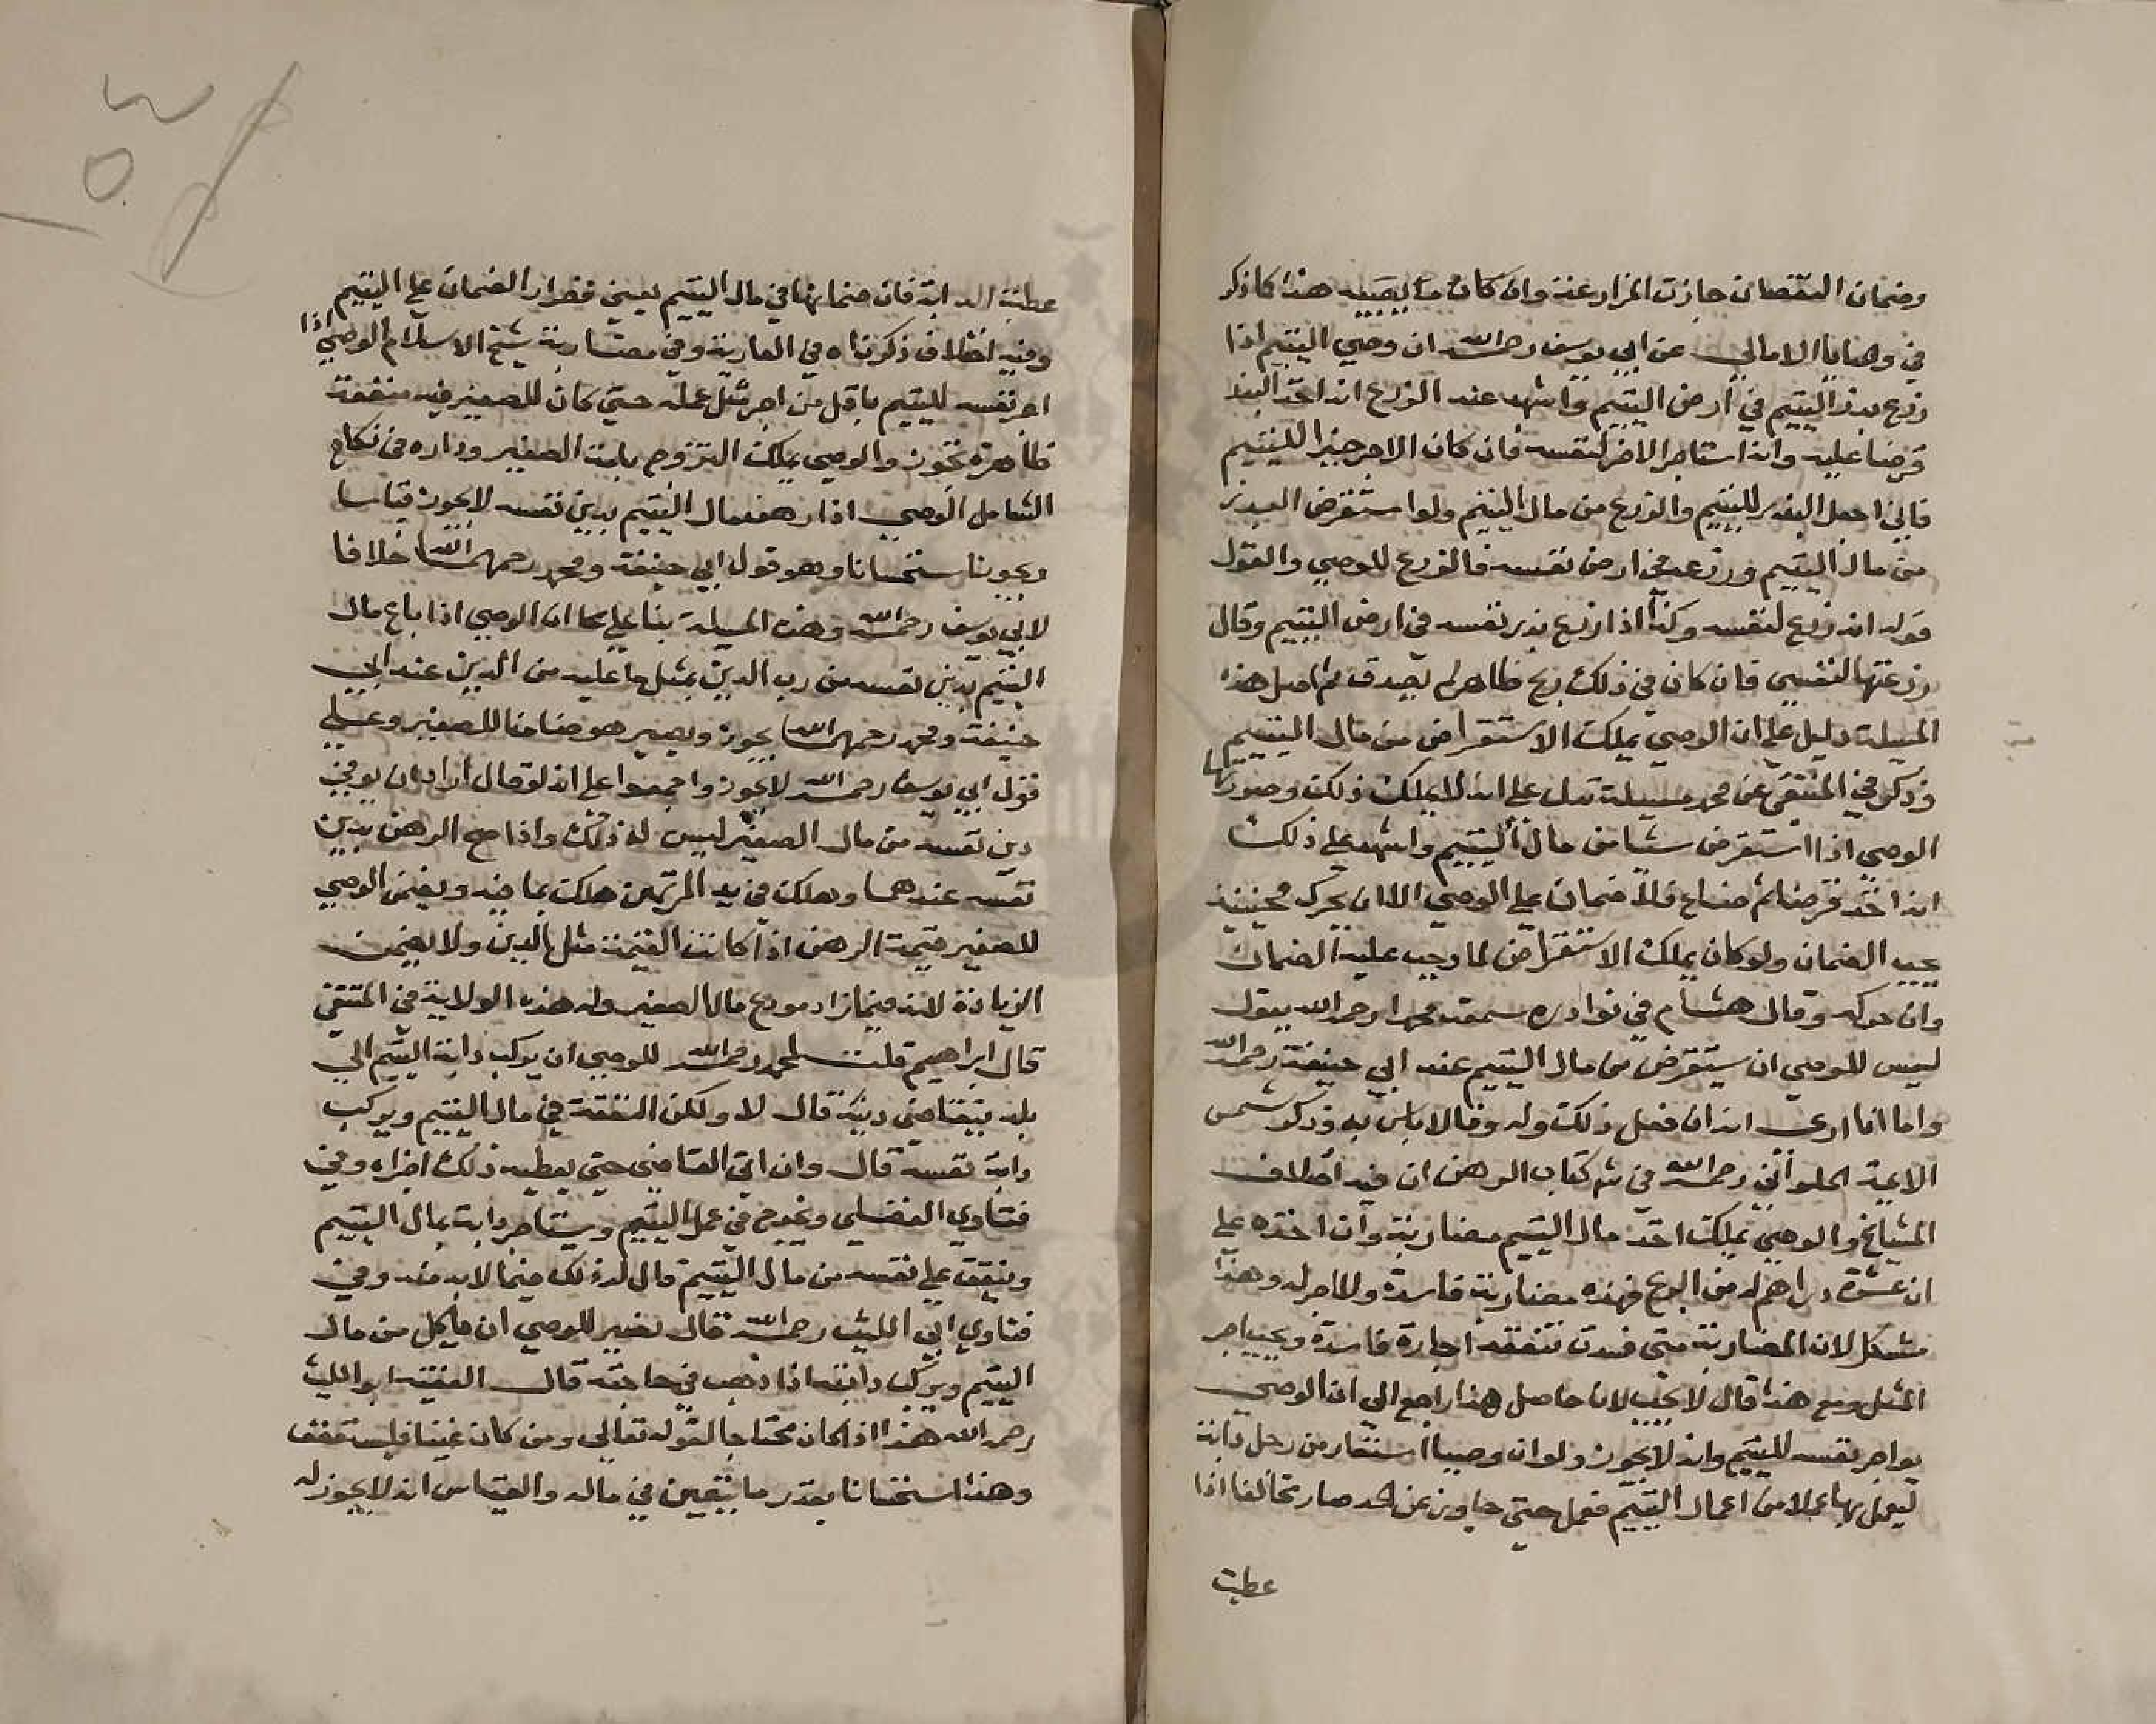 وضمان النقصان جازت المزارعة وان كان ما يصيبه هذا كما ذكر
في وصايا الامالي عن ابي يوسف رحمه الله ان وصي اليتيم اذا
زرع بذر اليتيم في ارض اليتيم واشهد عند الزرع انه اخذ البذر
قرضا عليه وانه استاجر الارض لنفسه فان كان الاجر خيرا لليتيم
فاني اجعل البذر لليتيم والزرع من مال اليتيم ولو استقرض البذر
من مال اليتيم وزرعه في ارض نفسه فالزرع للوصي والقول
قوله انه زرع لنفسه وكذا اذا زرع بذر نفسه في ارض اليتيم وقال
زرعتها لنفسي فان كان في ذلك ربح ظاهر لم يصدق ثم اصل هذه
المسيلة دليل على ان الوصي يملك الاستقراض من مال اليتيم
وذكر في المنتقى عن محمد مسيلة تدل على انه لا يملك ذلك وصورتها
الوصي اذا استقرض شيا من مال اليتيم واشهد على ذلك
انه اخذ قرضا ثم ضاع فلا ضمان على الوصي الا ان يحركه فحينئذ
يجب الضمان ولو كان يملك الاستقراض لما وجب عليه الضمان
وان حركه وقال هشام في نوادره سمعت محمدا رحمه الله يقول
ليس للوصي ان يستقرض من مال اليتيم عند ابي حنيفة رحمه الله
واما انا ارى انه ان فعل ذلك وله وفا لا باس به وذكر شمس
الايمة الحلواني رحمه الله في شركتاب الرهن ان فيه اختلاف
المشايخ والوصي يملك اخذ مال اليتيم مضاربة وان اخذه على
ان عشرة دراهم له من الربح فهذه مضاربة فاسدة ولا اجر له وهذا
مشكل لان المضاربة متى فسدت تنعقد اجارة فاسدة ويجب اجر
المثل ومع هذا قال لا يجب لان حاصل هذا راجع الى ان الوصي
يواجر نفسه لليتيم وانه لا يجوز ولو ان وصيا استعار من رجل دابة
ليعمل بها عملا من اعمال اليتيم فعمل حتى جاوز عن الحد صار مخالفا اذا
عطبت
عطبت الدابة فان ضمانها في مال اليتيم يعني قصرار الضمان على اليتيم
وفيه اختلاف ذكرناه في العارية وفي مضاربة شيخ الاسلام الوصي اذا
اجر نفسه لليتيم باقل من اجر مثل عمله حتى كان للصغير فيه منفعة
ظاهرة يجوز والوصي يملك التزوج بابنت الصغير وداره في نكاح
الشامل الوصي اذا رهن مال اليتيم بدين نفسه لا يجوز قياسا
ويجوز استحسانا وهو قول ابي حنيفة ومحمد رحمهما الله خلافا
لابي يوسف رحمه الله وهذه المسيلة بنا على ما ان الوصي اذا باع مال
اليتيم بدين نفسه من رب الدين بمثل ما عليه من الدين عند ابي
حنيفة ومحمد رحمهما الله يجوز ويصير هو ضامنا للصغير وعلى
قول ابي يوسف رحمه الله لا يجوز واجمعوا على انه لو قال اراد ان يوفي
دين نفسه من مال الصغير ليس له ذلك واذا صح الرهن بدين
نفسه عندهما وهلكت في يد المرتهن هلكت بما فيه ويضمن الوصي
للصغير قيمة الرهن اذا كانت القيمة مثل الدين ولا يضمن
الزيادة لانه فيما زاد مودع مال الصغير وله هذه الولاية في المنتقى
قال ابراهيم قلت لمحمد رحمه الله للوصي ان يركب دابة اليتيم الى
بلد يتقاضى دينه قال لا ولكن النفقة في مال اليتيم ويركب
دابة نفسه قال وان اتى القاضى حتى يعطيه ذلك اجزاه وفي
فتاوي الفضلي ويخرج في عمل اليتيم ويستاجر دابة بمال اليتيم
وينفق على نفسه من مال اليتيم قال له ذلك فيما لا بد منه وفي
فتاوي ابي الليث رحمه الله قال نصير للوصي ان ياكل من مال
اليتيم ويركب دابته اذا ذهب في حاجته قال الفقيه ابو الليث
رحمه الله هذا اذا كان محتاجا لقوله تعالى ومن كان غنيا فليستعفف
وهذا استحسانا بقدر ما يتعين في ماله والقياس انه لا يجوز له